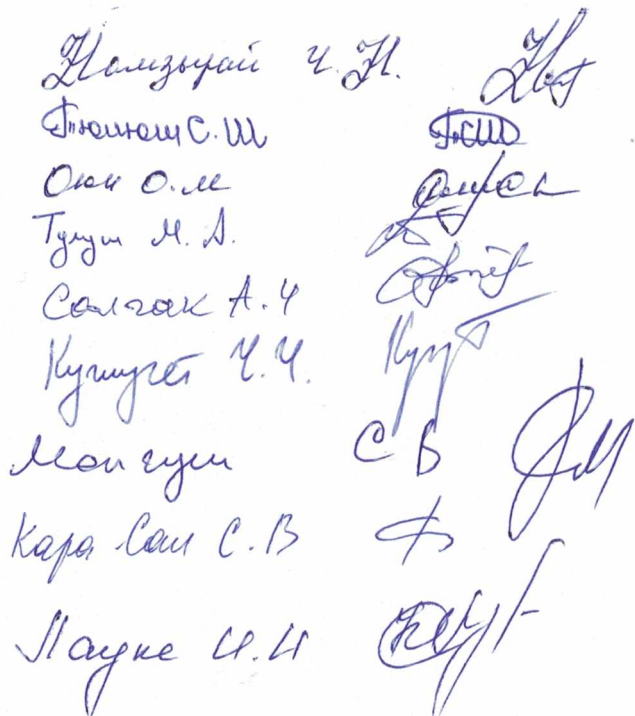 Намзырай Ч. Н.
Тюлюш С. Ш
Оюн О. М
Тулуш М. А.
Салчак А. Ч
Кужугет Ч. Ч.
Монгуш С В
Кара-Сал С. В
И. И